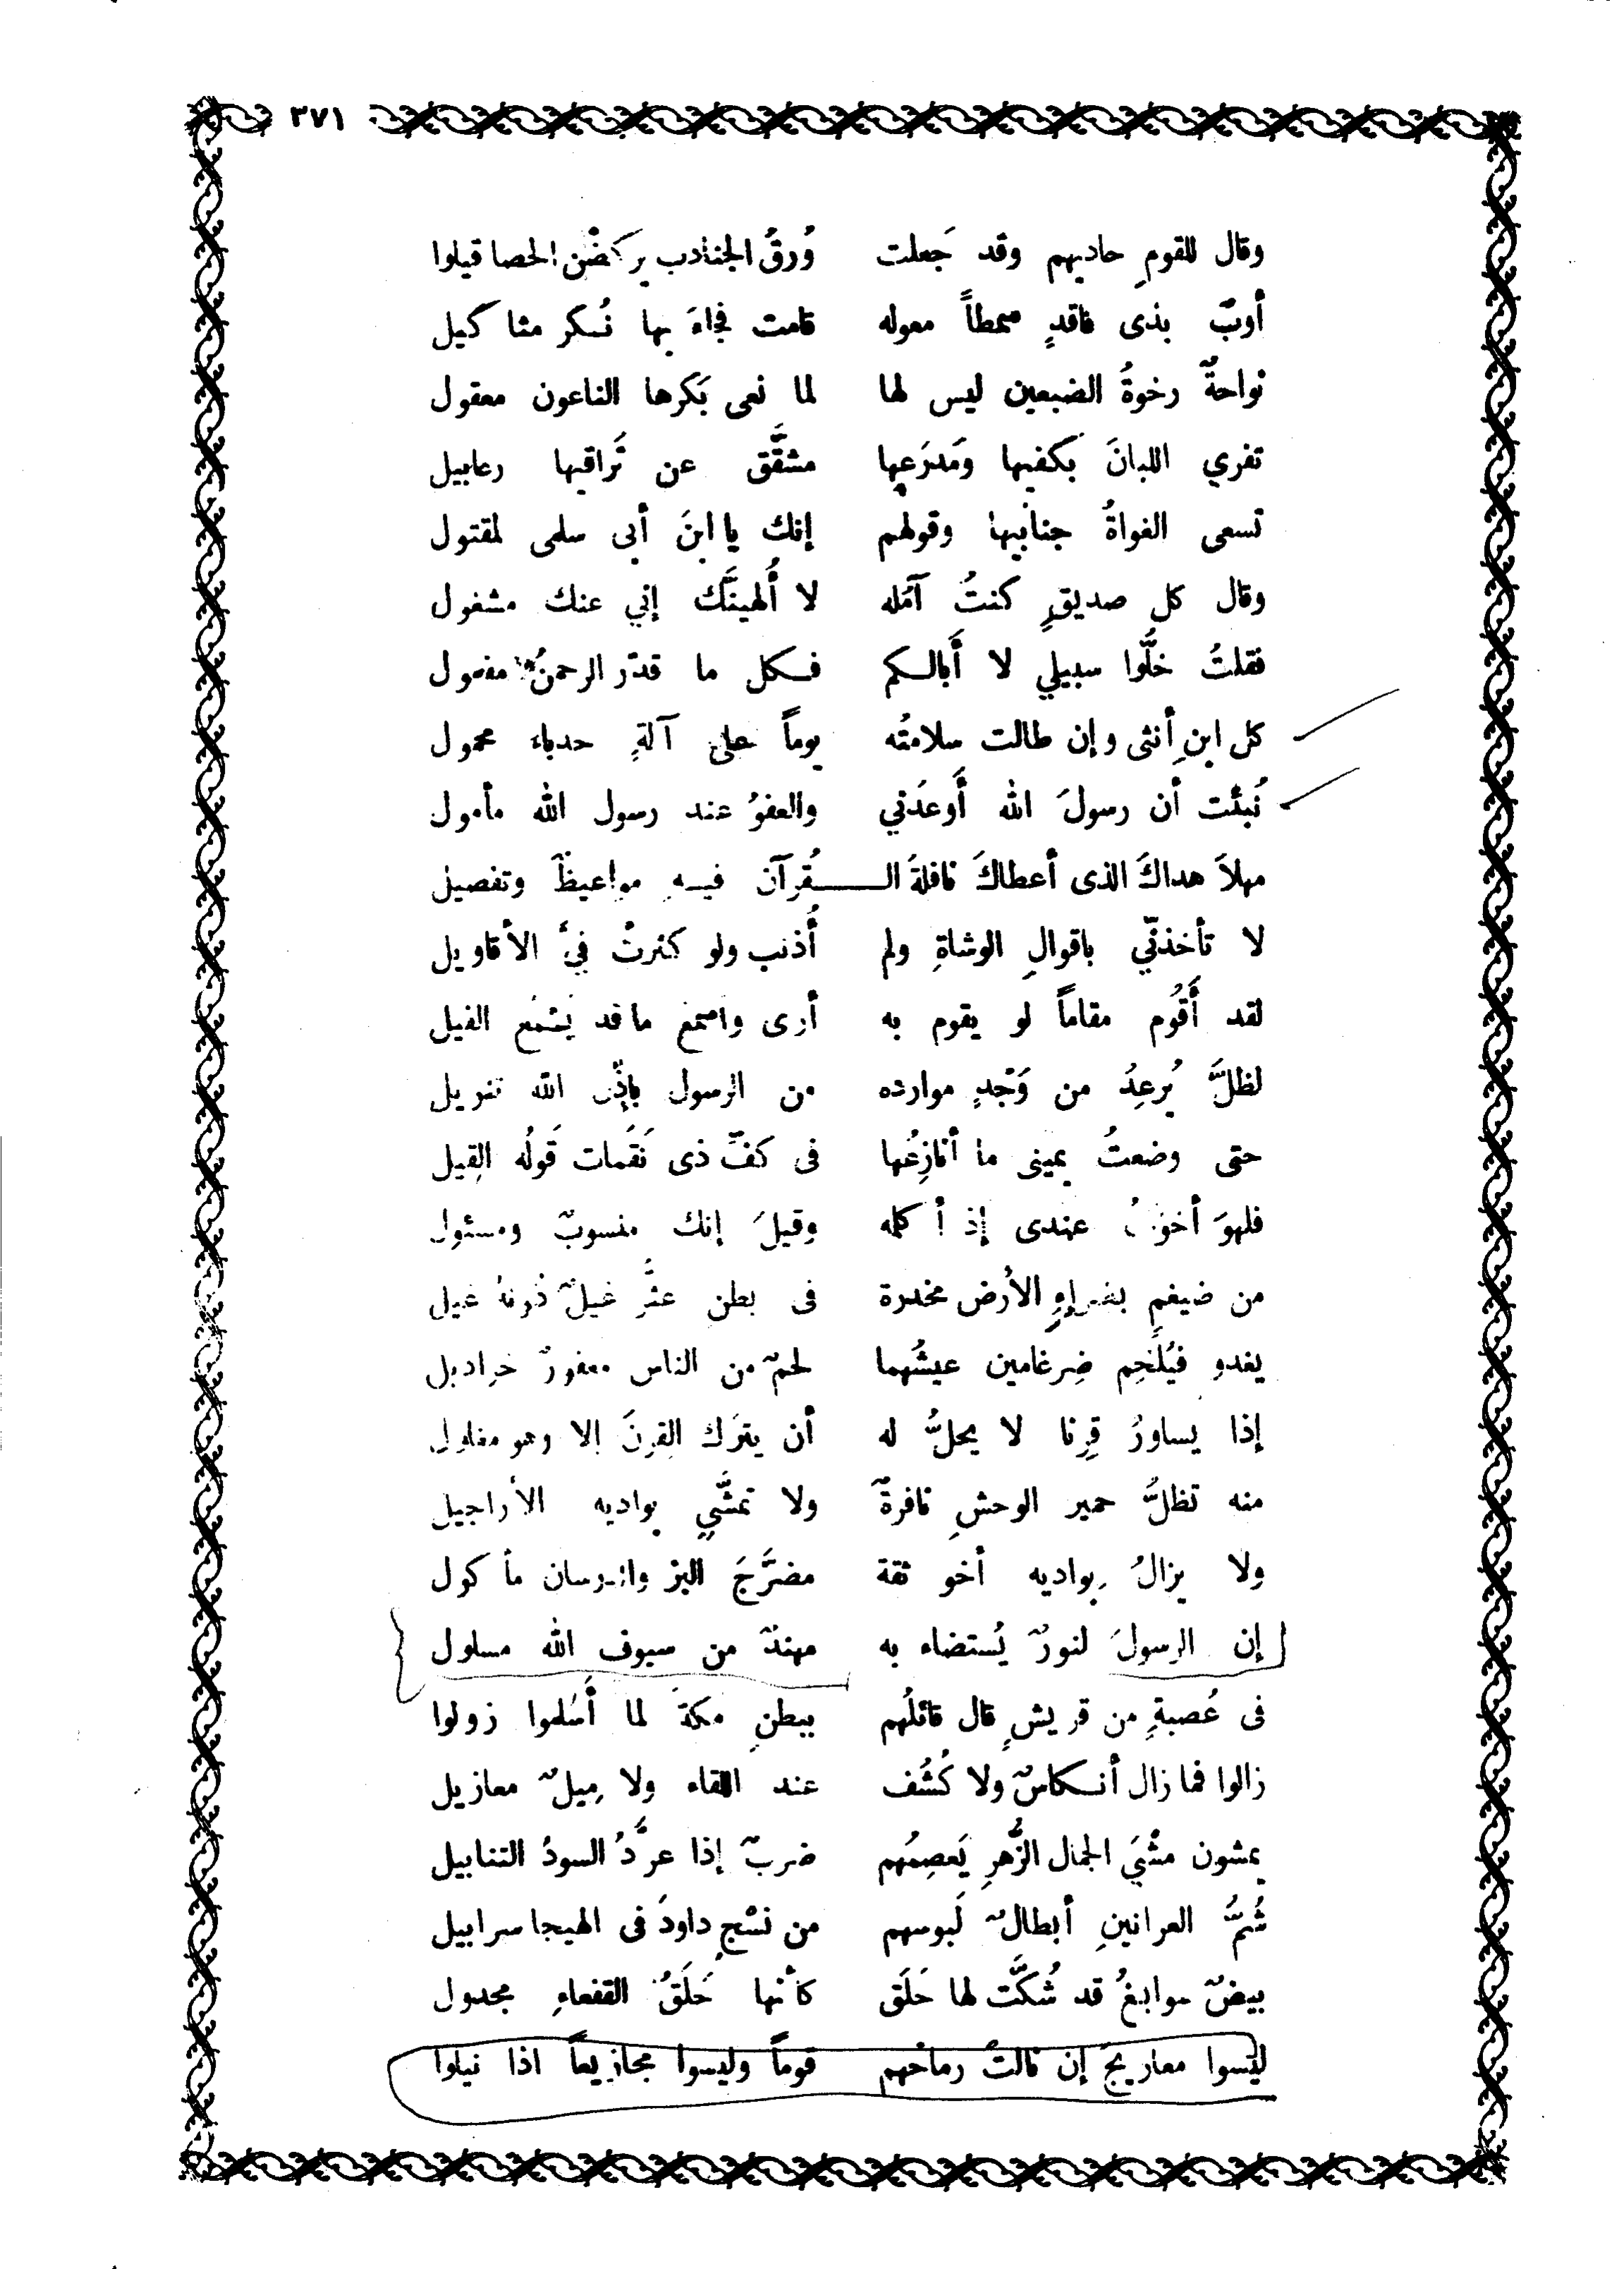 ٣٧١
وقال للقومِ حاديهم وقد جَعلت وُرقُ الجنادب يركضْن الحصا قيلوا
أوبٌ بذى فاقدٍ شمطاً معوله قامت فجاءَ بها نُكر مثا كيل
نواحةٌ رخوةُ الضبعين ليس لها لما نعى بَكرها الناعون معقول
تفري اللبانَ بكفيها ومَدرَعها مشقَّق عن تَراقيها رعابيل
تسعى الغواةُ جنابيها وقولهم إنك يا ابنَ أبى سلمى لمقتول
وقال كل صديقٍ كنتُ آمُله لا أُلهينَّك إني عنك مشغول
فقلتُ خلُّوا سبيلي لا أَبالكم فكل ما قدّر الرحمنُ مفعول
كل ابنِ أنثى وإن طالت سلامتُه يوماً على آلةٍ حدباء محمول
نُبئت أن رسولَ الله أَوعَدني والعفوُ عند رسول الله مأمول
مهلاَ هداكَ الذى أعطاكَ نافلةَ الـقُرآن فيه مواعيظَ وتفصيل
لا تأخذنّي باقوالِ الوشاةِ ولم أُذنب ولو كثرتْ فيَّ الأقاويل
لقد أَقُوم مقاماً لو يقوم به أرى واسمع ماقد يَسْمع الفيل
لظلَّ يُرعِدُ من وَجْدٍ موارده من الرسول بإذن الله تنويل
حتى وضعتُ يمينى ما أنازِعُها فى كفّ ذى نَقَمات قَولُه القِيل
فلهوَ أخوفُ عندى إذ أكلمه وقيلَ إنك منسوبٌ ومسئول
من ضيغمٍ بضراءِ الأرض مخدرة فى بطن عثَّر غيلٌ دُونه غيل
يغدو فيُلْحِم ضِرغامين عيشُهما لحمٌ من الناس معفورٌ خراديل
إذا يساورُ قِرنا لا يحلُّ له أن يترَك القِرنَ إلا وهو مفلول
منه تظلُّ حمير الوحشِ نافرةً ولا تمشَّي بواديه الأراجيل
ولا يزالُ بواديه أخو ثقة مضرَّجَ البز والدرسان مأكول
إن الرسولَ لنورٌ يُستضاء به مهندٌ من سيوف الله مسلول
فى عُصبةٍ من قريشٍ قال قائلُهم ببطنِ مكةَ لما أَسْلموا زولوا
زالوا فما زال أنكاسٌ ولا كُشُف عند اللقاء ولا مِيلٌ معازيل
يمشون مشْيَ الجمال الزُّهرِ يَعصِمُهم ضربٌ إذا عرَّدُ السودُ التنابيل
شُمُّ العرانينِ أبطالٌ لَبوسهم من نسْجِ داودَ فى الهيجا سرابيل
بيضٌ سوابغُ قد شُكَّت لها حَلَق كأنها حَلَقُ القفعاءِ مجدول
ليْسوا معاريجَ إن نالتْ رماحُهم قوماً وليسوا مجازيعاً اذا نيلوا